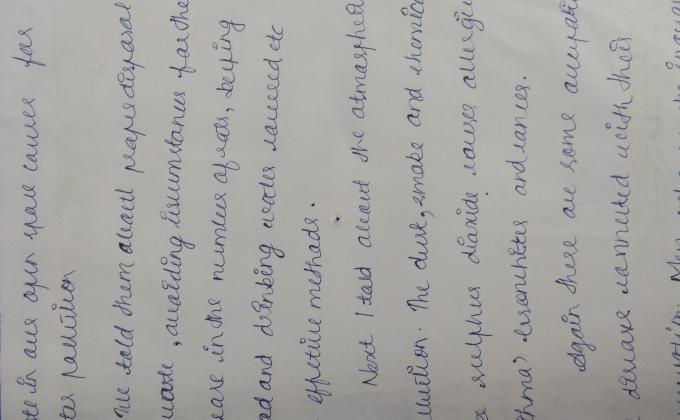 te in our open space causes far
ter pollution
We told them about proper disposal
waste, avoiding circumstances for the
ease in the number of rats, keeping
ed and drinking water covered etc
effective methods.
Next I told about the atmospheric
llution. The dust, smoke and chemical
sulphur dioxide causes allergic
thma, bronchites and cancer.
Again there are some occupati
disease connected with their